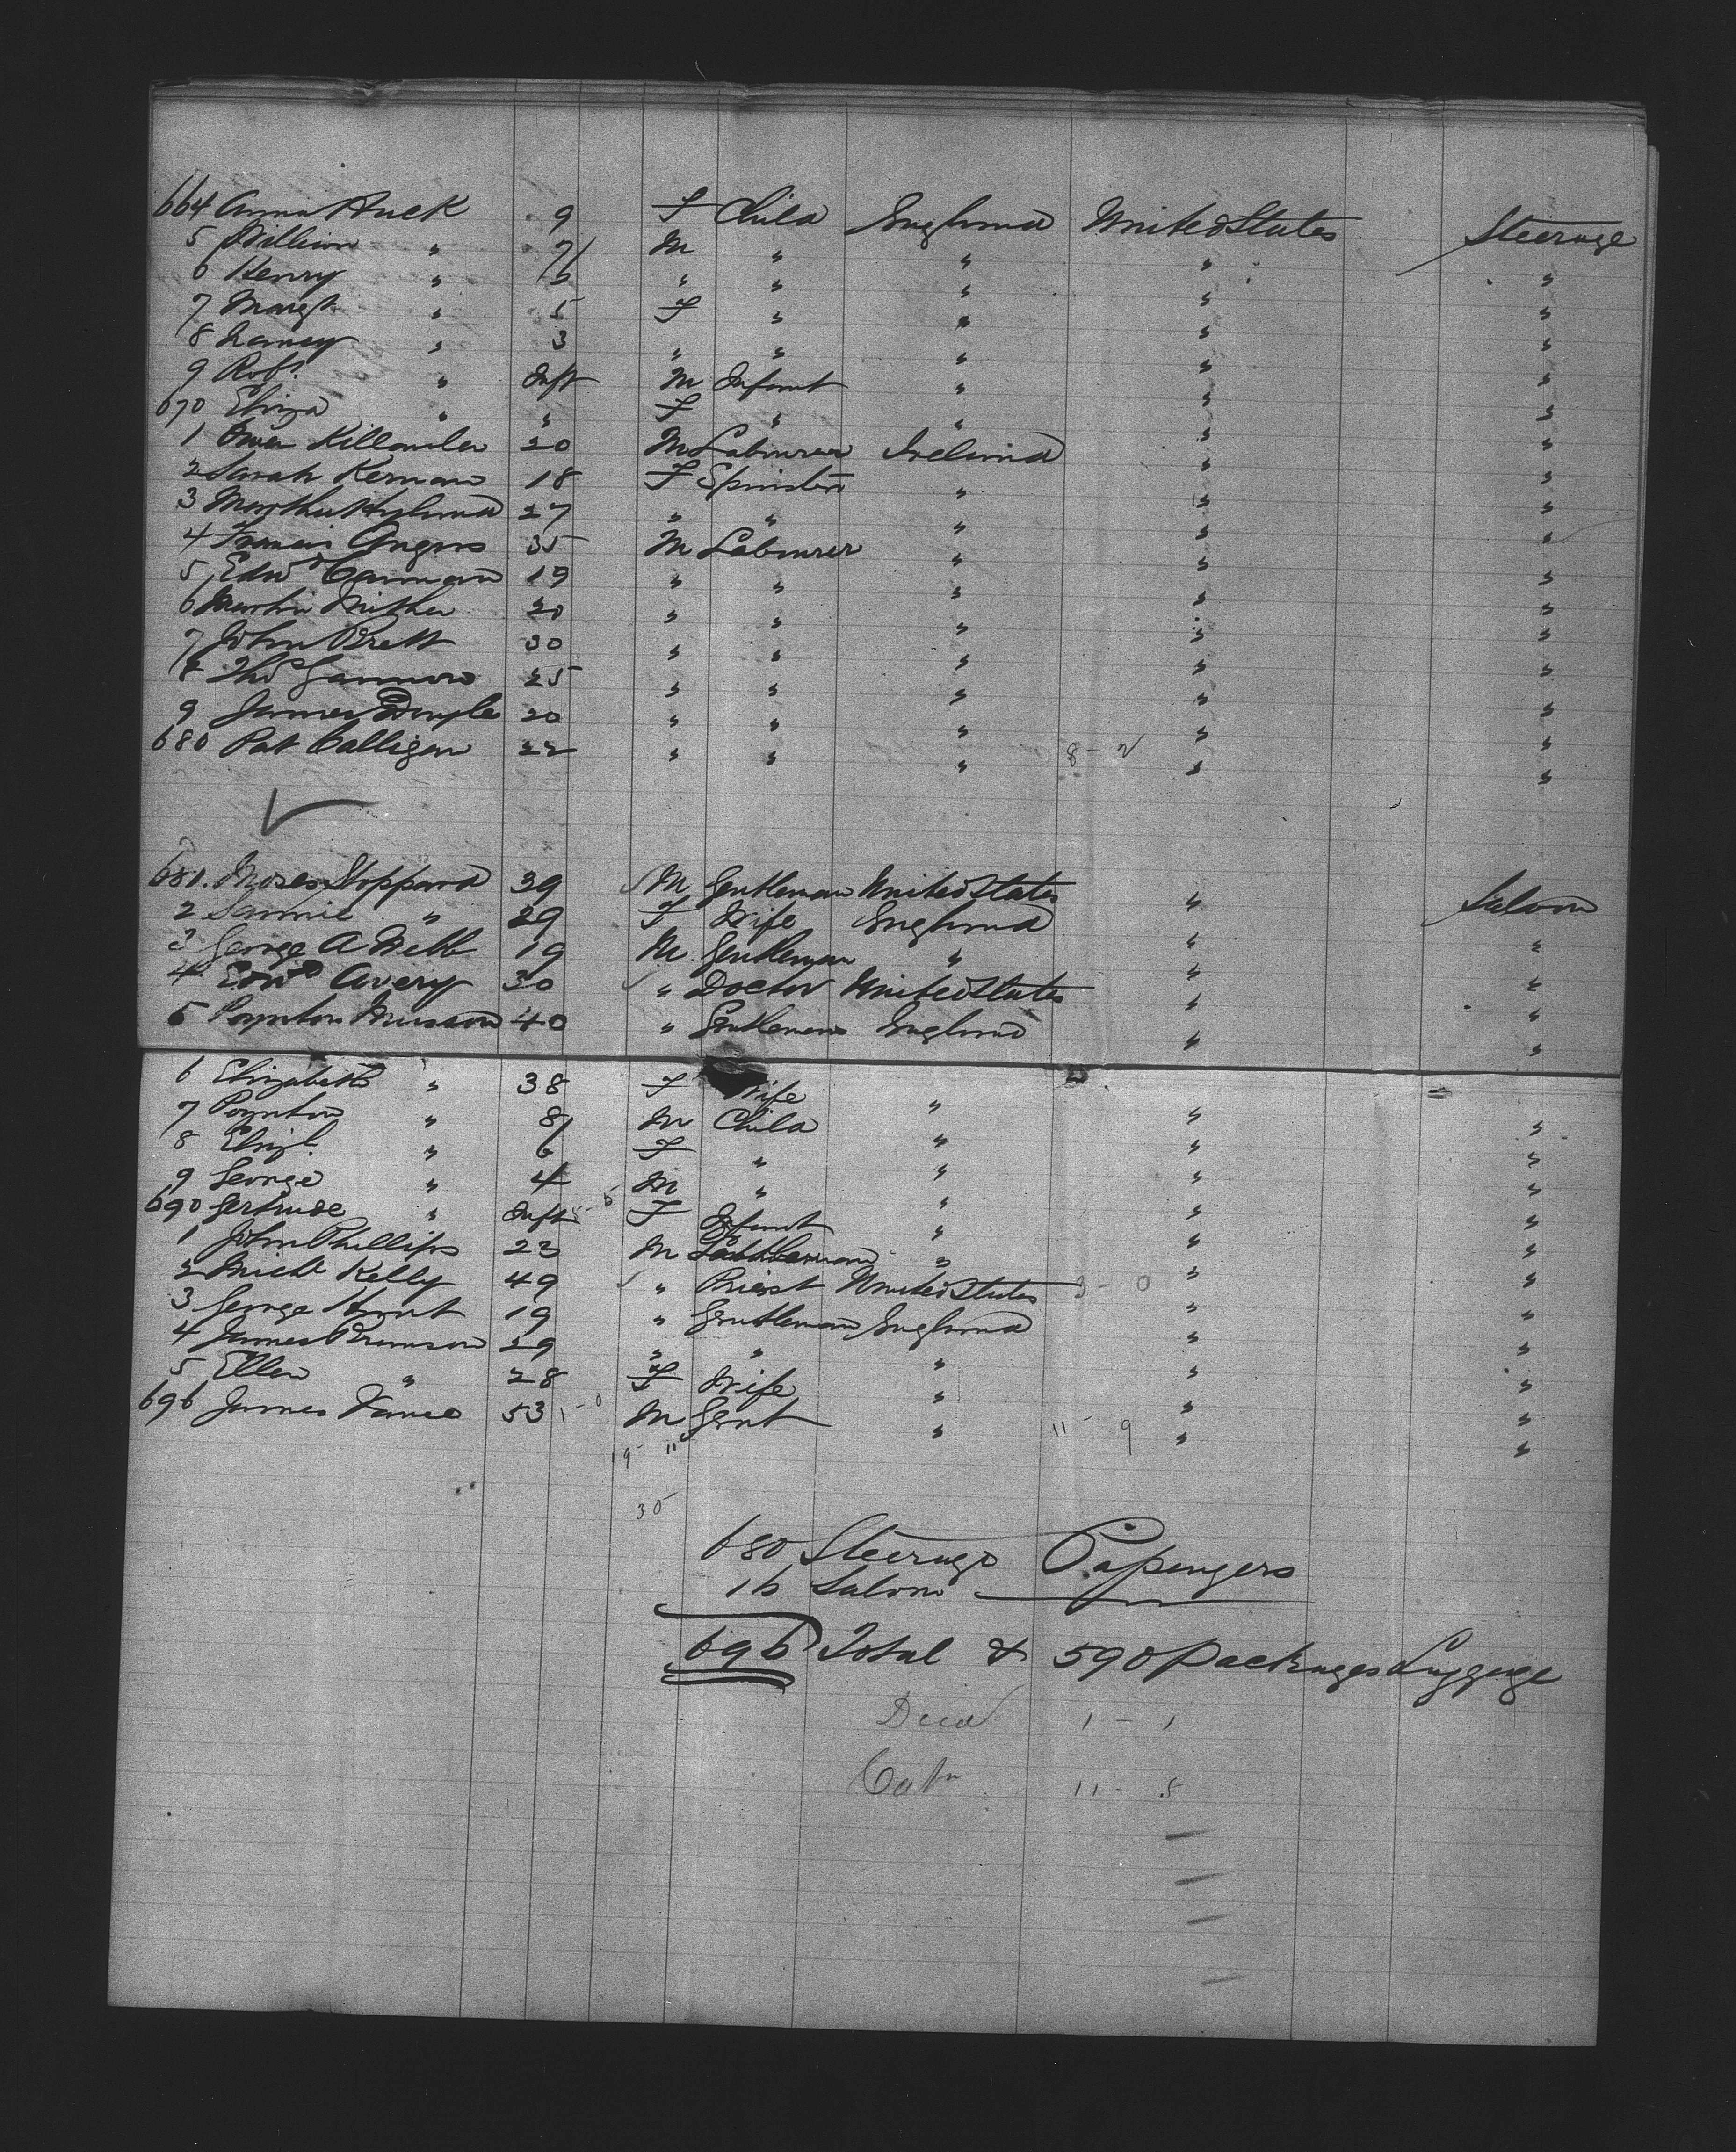 664 Anna Huck 9 F Child England United States Steerage
5 William " 7 M " " " "
6 Henry " 6 " " " " "
7 Margt " 5 F " " " "
8 Nancy " 3 " " " " "
9 Robt. " Inft M Infant " " "
670 Eliza " " F " " " "
1 Owen 20 M Labourer Ireland " "
2 Sarah Kernan 18 F Spinster " " "
3 Martha Hyland 27 " " " " "
4 Francis Angus 35 M Labourer " " "
5 Edwd 19 " " " " "
6 Martin 20 " " " " "
7 John Brett 30 " " " " "
8 Thos Gannon 25 " " " " "
9 James Doyle 20 " " " " "
680 Pat Calligan 22 " " " 8 - 2 " "
681. Moses Stoppard 39 M Gentleman United States " Saloon
2 Fannie " 29 F Wife England " "
3 George A Webb 19 M Gentleman " " "
4 Edwd Avery 30 " Doctor United States " "
5 Poynton 40 " Gentleman England " "
6 Elizabeth " 38 F Wife " " "
7 Poynton " 8 M Child " " "
8 Elizb. " 6 F " " " "
9 George " 4 M " " " "
690 Gertrude " Inft F Infant " " "
1 John Phillips 23 M Gentleman " " "
2 Michl Kelly 49 " Priest United States 3 - 0 " "
3 George Hunt 19 " Gentleman England " "
4 James 29 " " " " "
5 Ellen " 28 F Wife " " "
696 James Vance 53 1 - 0 M Gent " 11 - 9 " "
19 - 11
30
680 Steerage Passengers
16 Saloon
696 Total & 590 Packages Luggage
Died 1 - 1
11 - 5